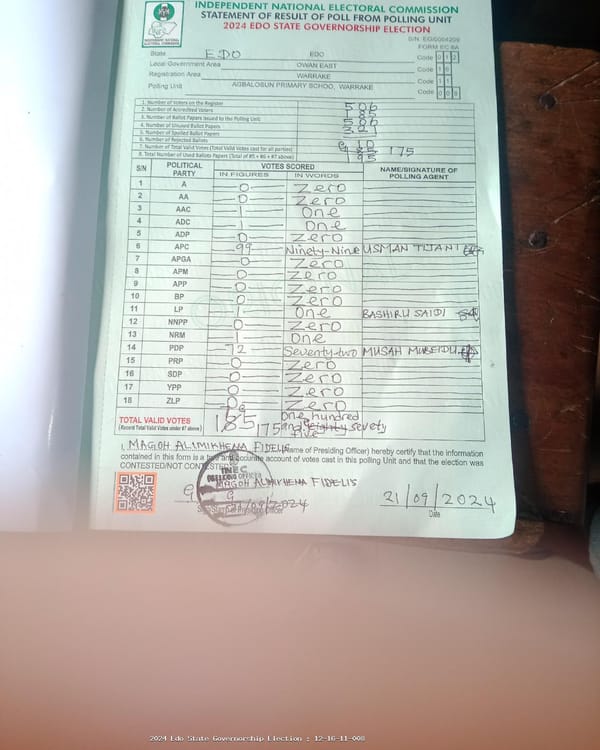 INDEPENDENT NATIONAL ELECTORAL COMMISSION
STATEMENT OF RESULT OF POLL FROM POLLING UNIT
2024 EDO STATE GOVERNORSHIP ELECTION
FORM EC 8A
State EDO EDO Code 012
Local Government Area OWAN EAST Code 16
Registration Area WARRAKE Code 11
Polling Unit AGBALOSUN PRIMARY SCHOO, WARRAKE Code 008
1. Number of Voters on the Register 506
2. Number of Accredited Voters 185
3. Number of Ballot Papers Issued to the Polling Unit 506
4. Number of Unused Ballot Papers 321
5. Number of Spoiled Ballot Papers
6. Number of Rejected Ballots 10
7. Number of Total Valid Votes (Total Valid Votes cast for all parties) 175
8. Total Number of Used Ballots Papers (Total of #5 + #6 + #7 above)
S/N POLITICAL PARTY VOTES SCORED NAME/SIGNATURE OF POLLING AGENT
IN FIGURES IN WORDS
1 A 0 Zero
2 AA 0 Zero
3 AAC 1 One
4 ADC 1 One
5 ADP 0 Zero
6 APC 99 Ninety-Nine USMAN TIJANI
7 APGA 0 Zero
8 APM 0 Zero
9 APP 0 Zero
10 BP 0 Zero
11 LP 1 One BASHIRU SAIDI
12 NNPP 0 Zero
13 NRM 1 One
14 PDP 72 Seventy-two MUSAH MUBEIDU
15 PRP 0 Zero
16 SDP 0 Zero
17 YPP 0 Zero
18 ZLP 0 Zero
TOTAL VALID VOTES 185 One hundred
(Record Total Valid Votes under #7 above) 175 and eighty sevety
five
I, MAGOH ALIMIKHENA FIDELIS (Name of Presiding Officer) hereby certify that the information
contained in this form is a true and accurate account of votes cast in this polling Unit and that the election was
CONTESTED/NOT CONTESTED
INEC
MAGOH ALIMIKHENA FIDELIS
21/09/2024
21/09/2024
Date
2024 Edo State Governorship Election : 12-16-11-008